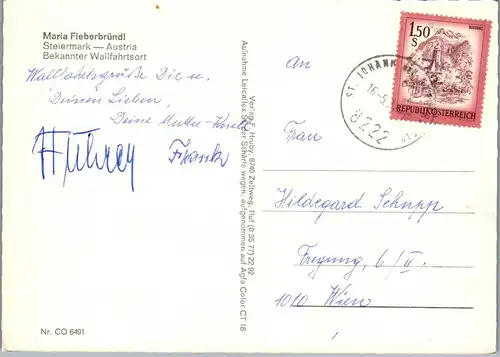 Maria Fieberbründl
Steiermark — Austria
Bekannter Wallfahrtsort
Wallfahrtsgrüße Dir u.
Deinen Lieben,
Deine Mutter
Frank
Nr. CO 6491
Verlag J. Hruby, 8740 Zeltweg, Ruf (0 35 77) 22 92
Aufnahme Leicaflex SL, der Schärfe wegen, aufgenommen auf Agfa Color CT 18
An
Frau
Hildegard Schupp
Freyung 6/II.
1010 Wien
1.50
S
REPUBLIK ÖSTERREICH
ST. JOHANN
16.5.
8222